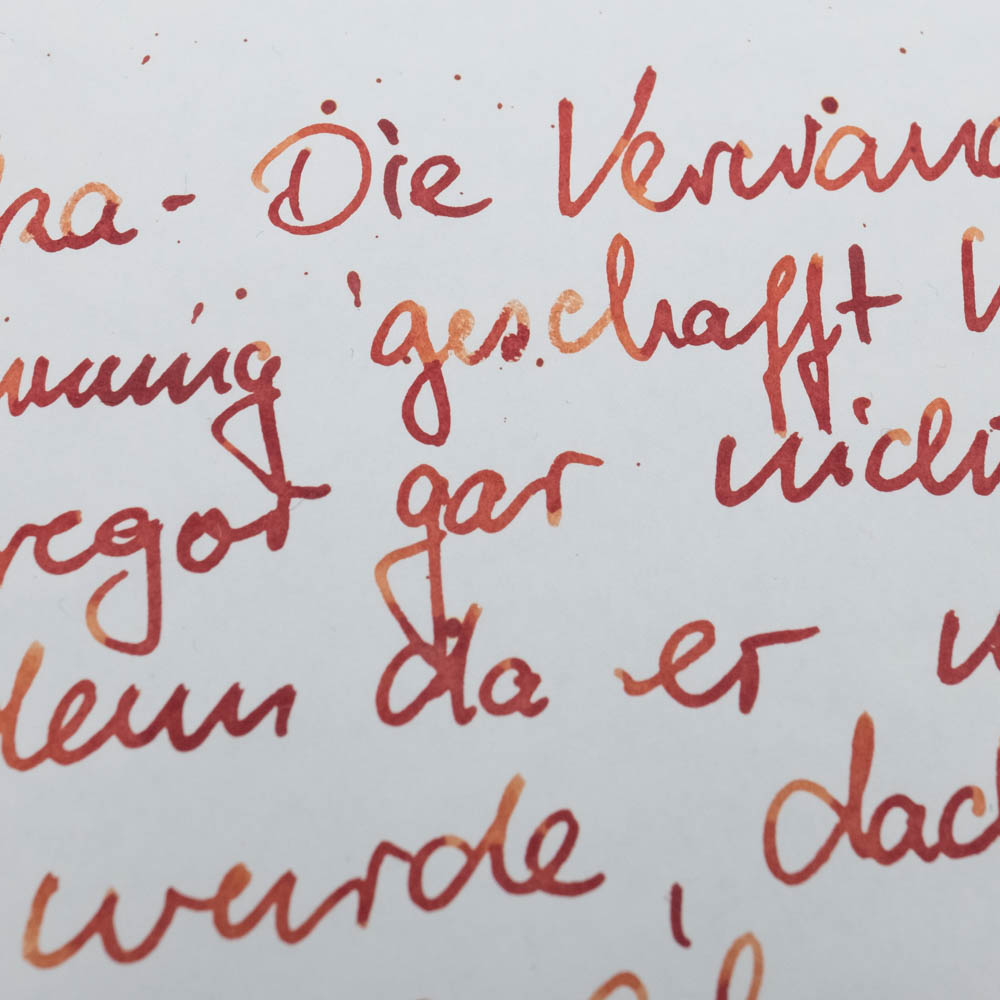 ka - Die Verwand
mung geschafft
regor gar nich
denn da er
wurde, dach